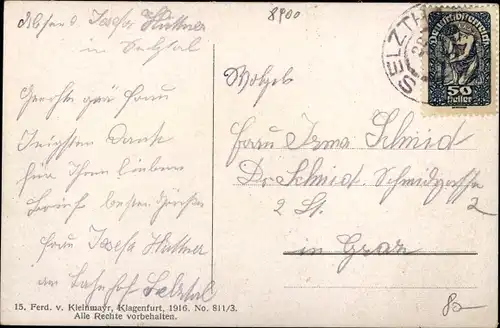 Abs. v. Josefa Huttner
in Selztal
8900
SELZTH
Deutschösterreich
50
Heller
Geehrte gnä Frau
Innigsten Dank
für Ihren lieben
Brief besten Grüßen
Frau Josefa Huttner
am Bahnhof Selztal
Frau Irma Schmid
Dr Schmid, Schmidgasse 2
2 St.
in Graz
80
15. Ferd. v. Kleinmayr, Klagenfurt, 1916. No. 811/3.
Alle Rechte vorbehalten.